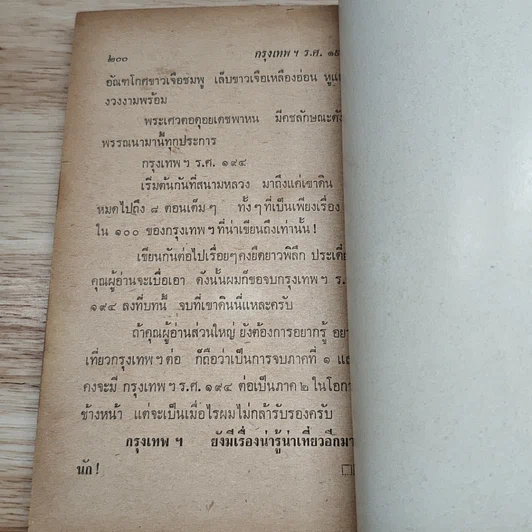 ๒๐๐ กรุงเทพ ฯ ร.ศ.
อัณฑโกศขาวเจือชมพู เล็บขาวเจือเหลืองอ่อน
งวงงามพร้อม
พระเศวตอดุลยเดชพาหน มีคชลักษณะ
พรรณนามานี้ทุกประการ
กรุงเทพ ฯ ร.ศ. ๑๙๔
เริ่มต้นกันที่สนามหลวง มาถึงแค่เขาดิน
หมดไปถึง ๘ ตอนเต็ม ๆ ทั้ง ๆ ที่เป็นเพียงเรื่อง
ใน ๑๐๐ ของกรุงเทพ ฯ ที่น่าเขียนถึงเท่านั้น !
เขียนกันต่อไปเรื่อย ๆ คงยืดยาวพิลึก
คุณผู้อ่านจะเบื่อเอา ดังนั้นผมก็ขอจบกรุงเทพ ฯ ร.
๑๙๔ ลงที่บทนี้ จบที่เขาดินนี่แหละครับ
ถ้าคุณผู้อ่านส่วนใหญ่ ยังต้องการอยากรู้
เที่ยวกรุงเทพ ฯ ต่อ ก็ถือว่าเป็นการจบภาคที่ ๑
คงจะมี กรุงเทพ ฯ ร.ศ. ๑๙๔ ต่อเป็นภาค ๒ ในโอกา
ข้างหน้า แต่จะเป็นเมื่อไรผมไม่กล้ารับรองครับ
กรุงเทพ ฯ ยังมีเรื่องน่ารู้น่าเที่ยวอีกมา
นัก !